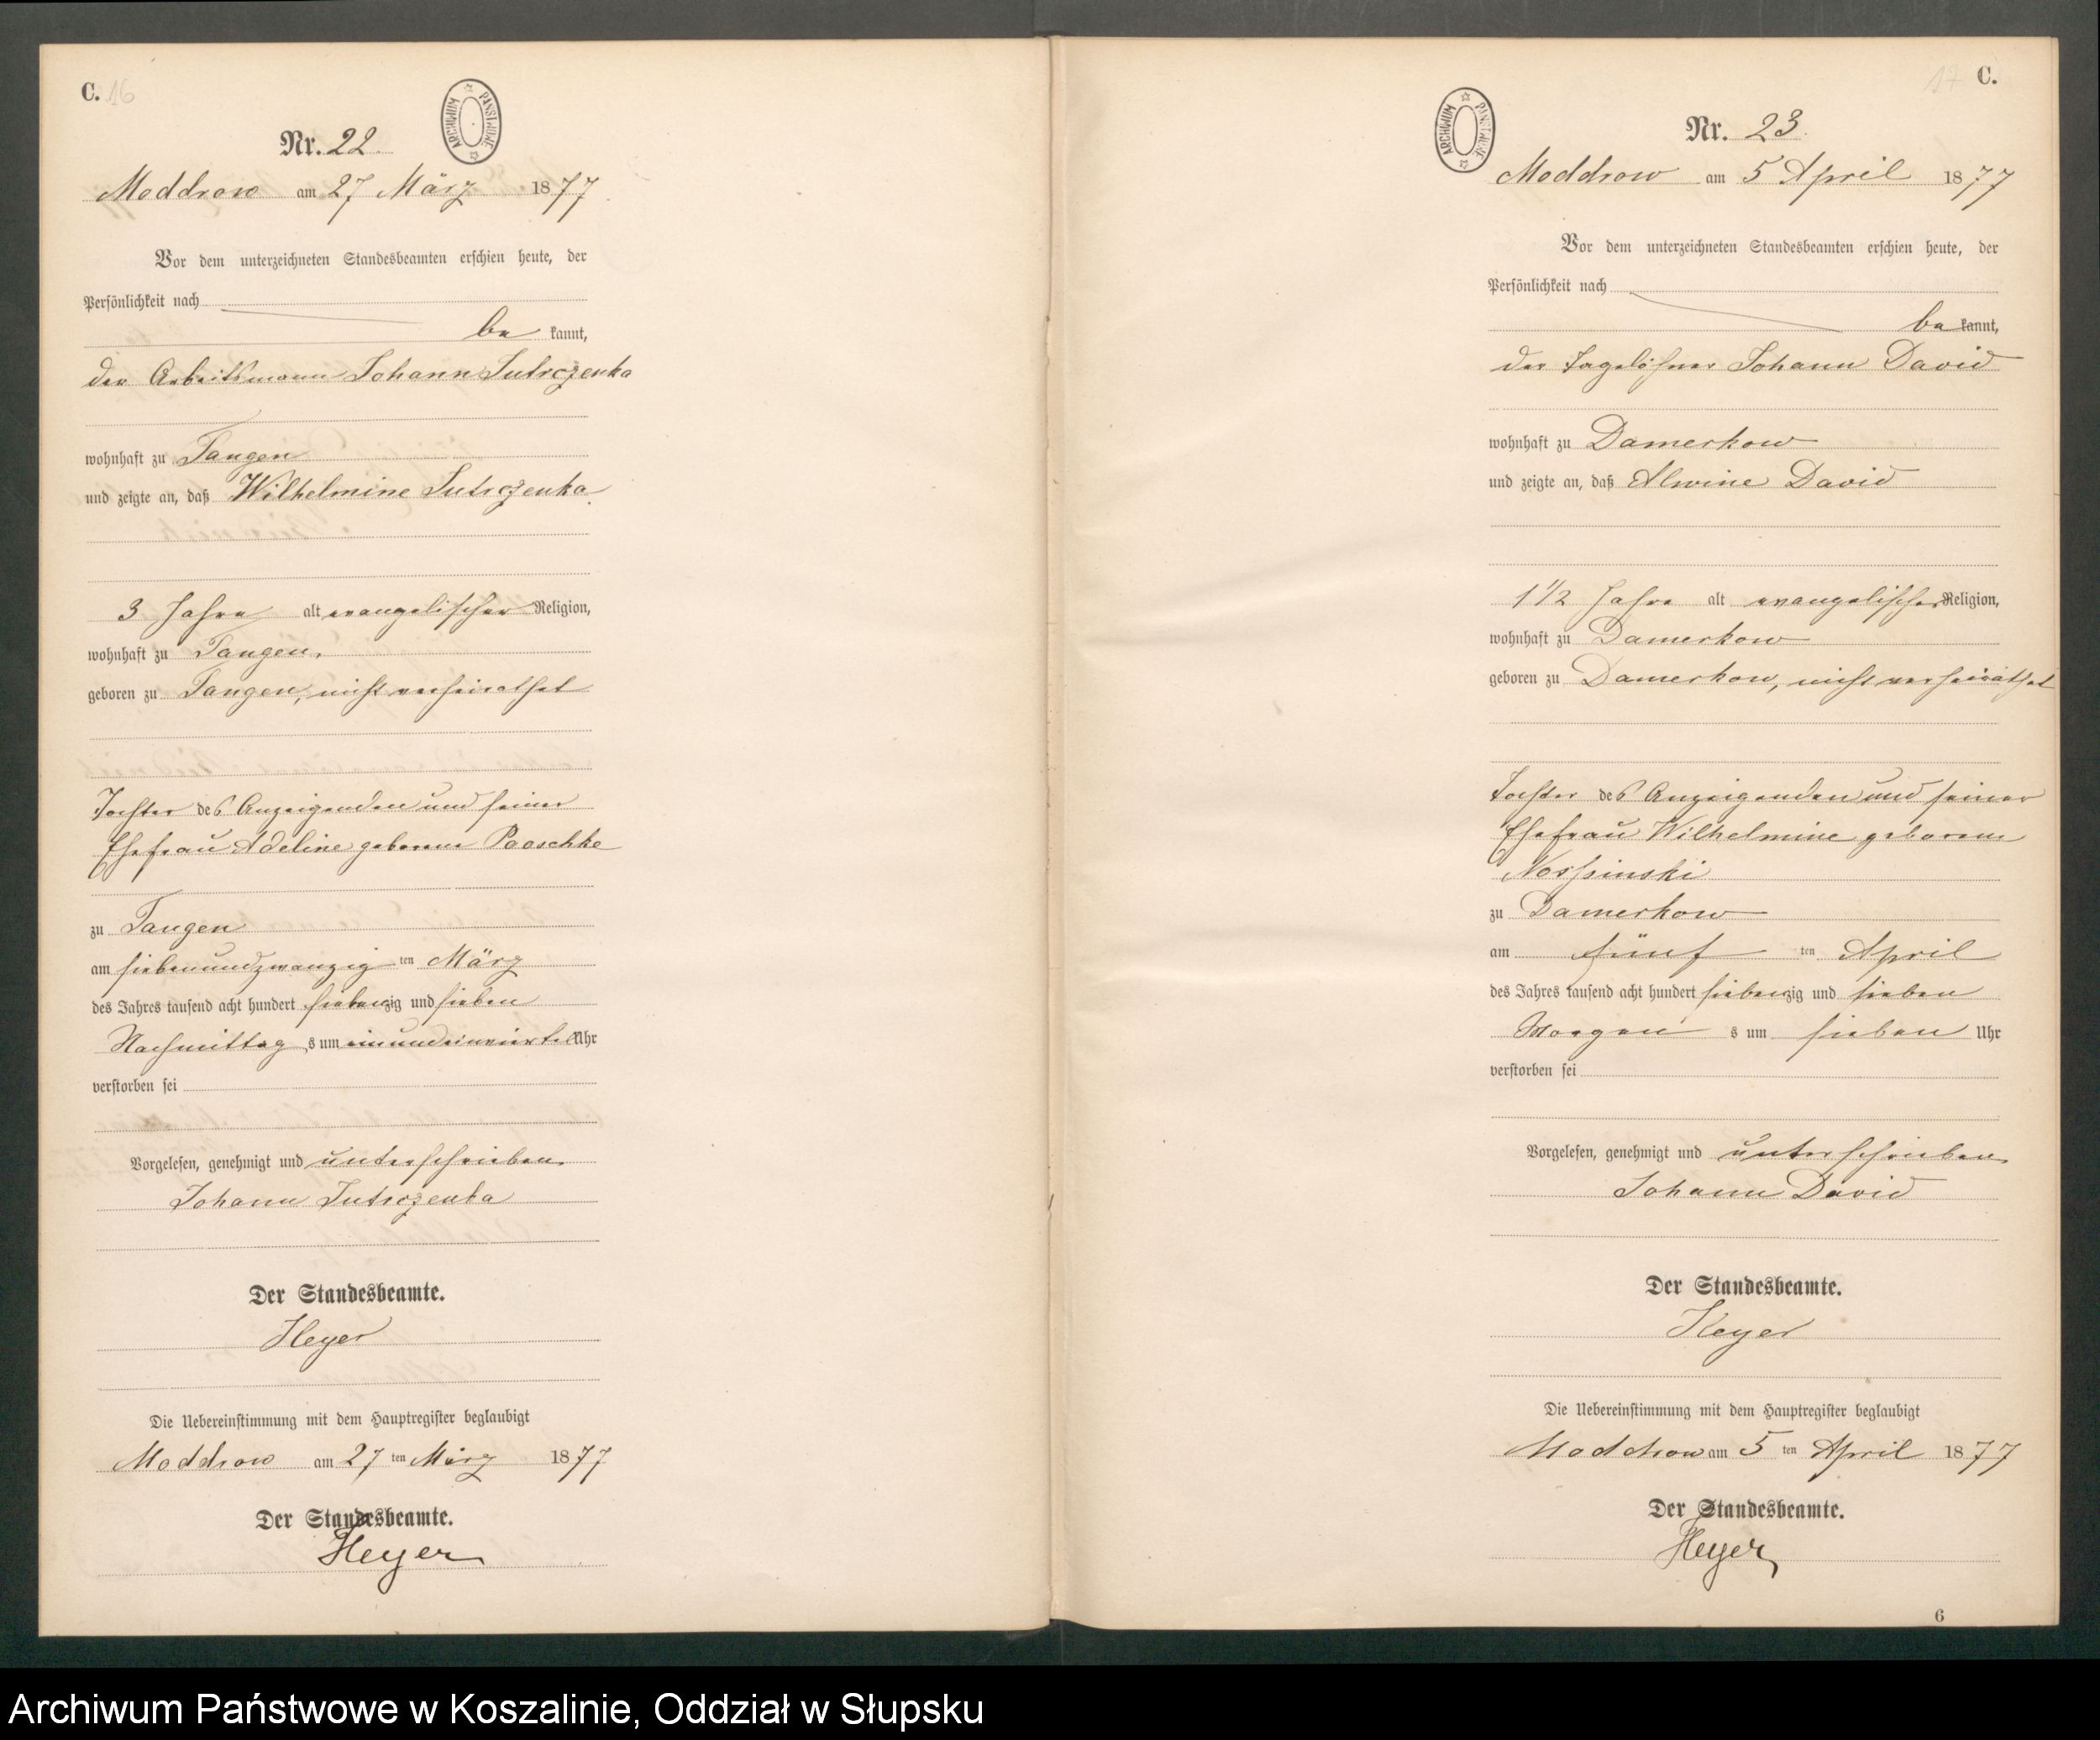 C. 16
ARCHIWUM PAŃSTWOWE
Nr. 22.
Moddrow am 27 März 1877
Vor dem unterzeichneten Standesbeamten erschien heute, der
Persönlichkeit nach
be kannt,
der Arbeitsmann Johann Jutrczenka
wohnhaft zu Tangen
und zeigte an, daß Wilhelmine Jutrczenka
3 Jahre alt evangelischer Religion,
wohnhaft zu Tangen,
geboren zu Tangen, nicht verheirathet
Tochter des Anzeigenden und seiner
Ehefrau Adeline geborene Paaschke
zu Tangen
am siebenundzwanzig ten März
des Jahres tausend acht hundert siebenzig und sieben
Nachmittag s um einundeinviertel Uhr
verstorben sei
Vorgelesen, genehmigt und unterschrieben.
Johann Jutrczenka
Der Standesbeamte.
Heyer
Die Uebereinstimmung mit dem Hauptregister beglaubigt
Moddrow am 27 ten März 1877
Der Standesbeamte.
Heyer
17 C.
ARCHIWUM PAŃSTWOWE
Nr. 23.
Moddrow am 5 April 1877
Vor dem unterzeichneten Standesbeamten erschien heute, der
Persönlichkeit nach
be kannt,
der Tagelöhner Johann David
wohnhaft zu Damerkow
und zeigte an, daß Alwine David
1 1/2 Jahre alt evangelischer Religion,
wohnhaft zu Damerkow
geboren zu Damerkow, nicht verheirathet
Tochter des Anzeigenden und seiner
Ehefrau Wilhelmine geborene
Nossinski
zu Damerkow
am fünf ten April
des Jahres tausend acht hundert siebenzig und sieben
Morgen s um sieben Uhr
verstorben sei
Vorgelesen, genehmigt und unterschrieben
Johann David
Der Standesbeamte.
Heyer
Die Uebereinstimmung mit dem Hauptregister beglaubigt
Moddrow am 5 ten April 1877
Der Standesbeamte.
Heyer
6
Archiwum Państwowe w Koszalinie, Oddział w Słupsku